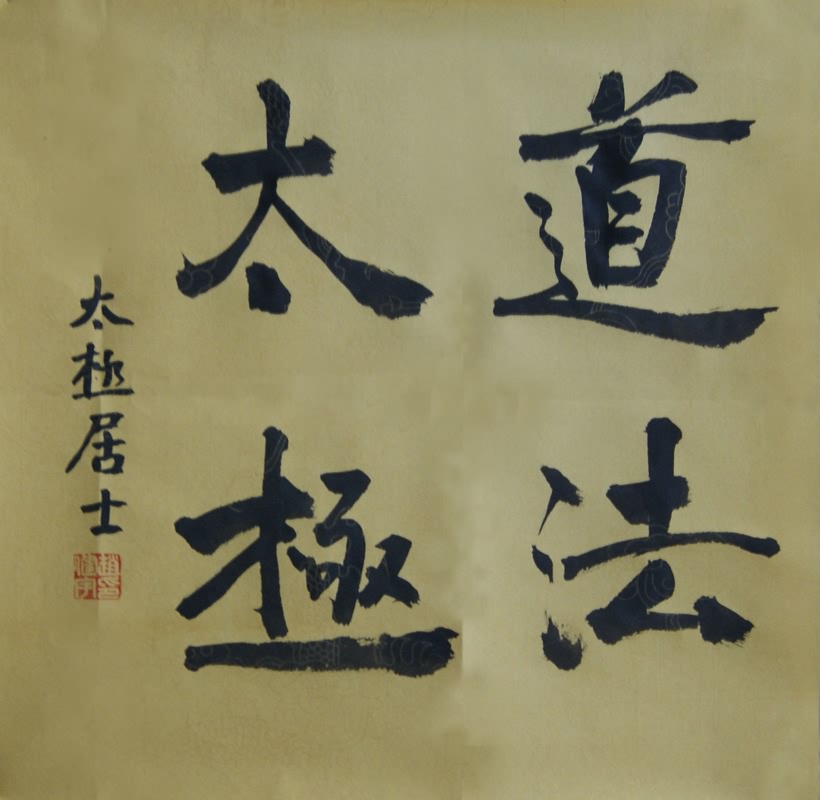 道法
太極
太極居士